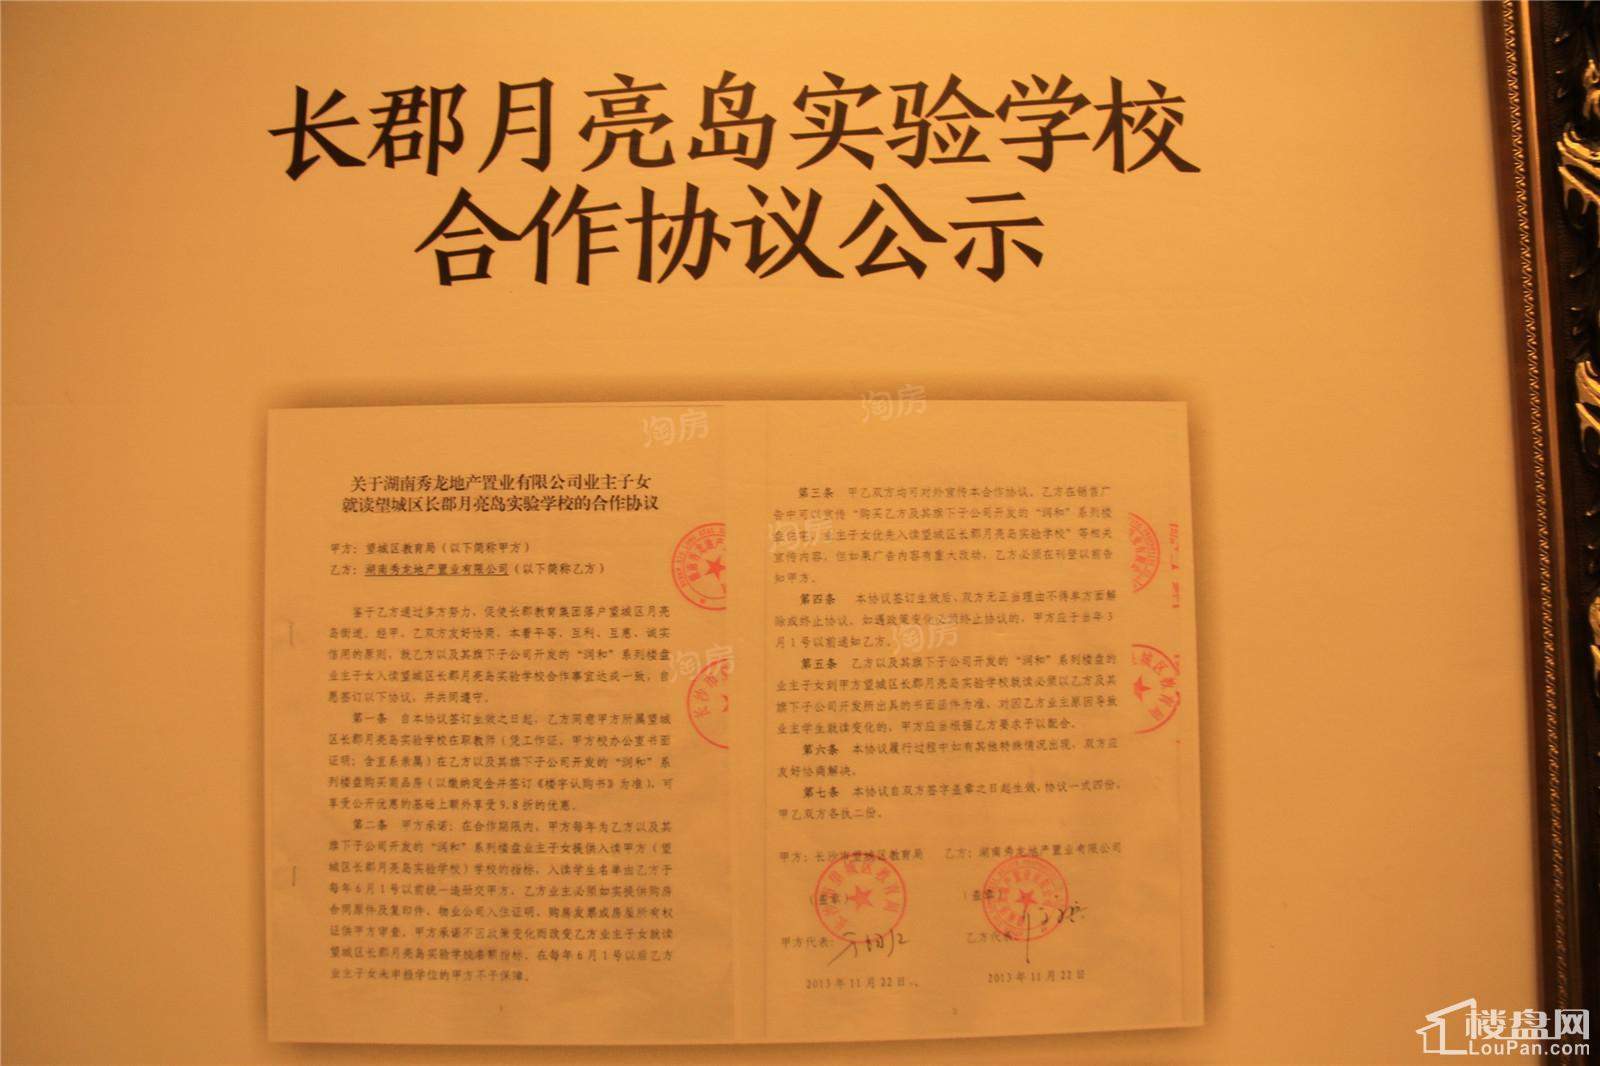 长郡月亮岛实验学校
合作协议公示
关于湖南秀龙地产置业有限公司业主子女
就读望城区长郡月亮岛实验学校的合作协议
甲方：望城区教育局（以下简称甲方）
乙方：湖南秀龙地产置业有限公司（以下简称乙方）
鉴于乙方通过多方努力，促使长郡教育集团落户望城区月亮
岛街道，经甲、乙双方友好协商，本着平等、互利、互惠、诚实
信用的原则，就乙方以及其旗下子公司开发的“润和”系列楼盘
业主子女入读望城区长郡月亮岛实验学校合作事宜达成一致，自
愿签订以下协议，并共同遵守。
第一条 自本协议签订生效之日起，乙方同意甲方所属望城
区长郡月亮岛实验学校在职教师（凭工作证，甲方校办公室书面
证明；含直系亲属）在乙方以及其旗下子公司开发的“润和”系
列楼盘购买商品房（以缴纳定金并签订《楼宇认购书》为准），可
享受公开优惠的基础上额外享受9.8折的优惠。
第二条 甲方承诺：在合作期限内，甲方每年为乙方以及其
旗下子公司开发的“润和”系列楼盘业主子女提供入读甲方（望
城区长郡月亮岛实验学校）学校的指标，入读学生名单由乙方于
每年6月1号以前统一造册交甲方，乙方业主必须如实提供购房
合同原件及复印件、物业公司入住证明、购房发票或房屋所有权
证供甲方审查。甲方承诺不因政策变化而改变乙方业主子女就读
望城区长郡月亮岛实验学校指标，在每年6月1号以后乙方
业主子女未申报学位的甲方不予保障。
第三条 甲乙双方均可对外宣传本合作协议，乙方在销售广
告中可以宣传“购买乙方及其旗下子公司开发的“润和”系列楼
盘住宅，业主子女优先入读望城区长郡月亮岛实验学校”等相关
宣传内容，但如果广告内容有重大改动，乙方必须在刊登以前告
知甲方。
第四条 本协议签订生效后，双方无正当理由不得单方面解
除或终止协议，如遇政策变化必须终止协议的，甲方应于当年3
月1号以前通知乙方。
第五条 乙方以及其旗下子公司开发的“润和”系列楼盘的
业主子女到甲方望城区长郡月亮岛实验学校就读必须以乙方及其
旗下子公司开发所出具的书面函件为准，对因乙方业主原因导致
业主学生就读变化的，甲方应当根据乙方要求予以配合。
第六条 本协议履行过程中如有其他特殊情况出现，双方应
友好协商解决。
第七条 本协议自双方签字盖章之日起生效，协议一式四份，
甲乙双方各执二份。
甲方：长沙市望城区教育局 乙方：湖南秀龙地产置业有限公司
（盖章） （盖章）
甲方代表： 乙方代表：
2013年11月22日 2013年11月22日
淘房
淘房
淘房
淘房
淘房
楼盘网
LouPan.com